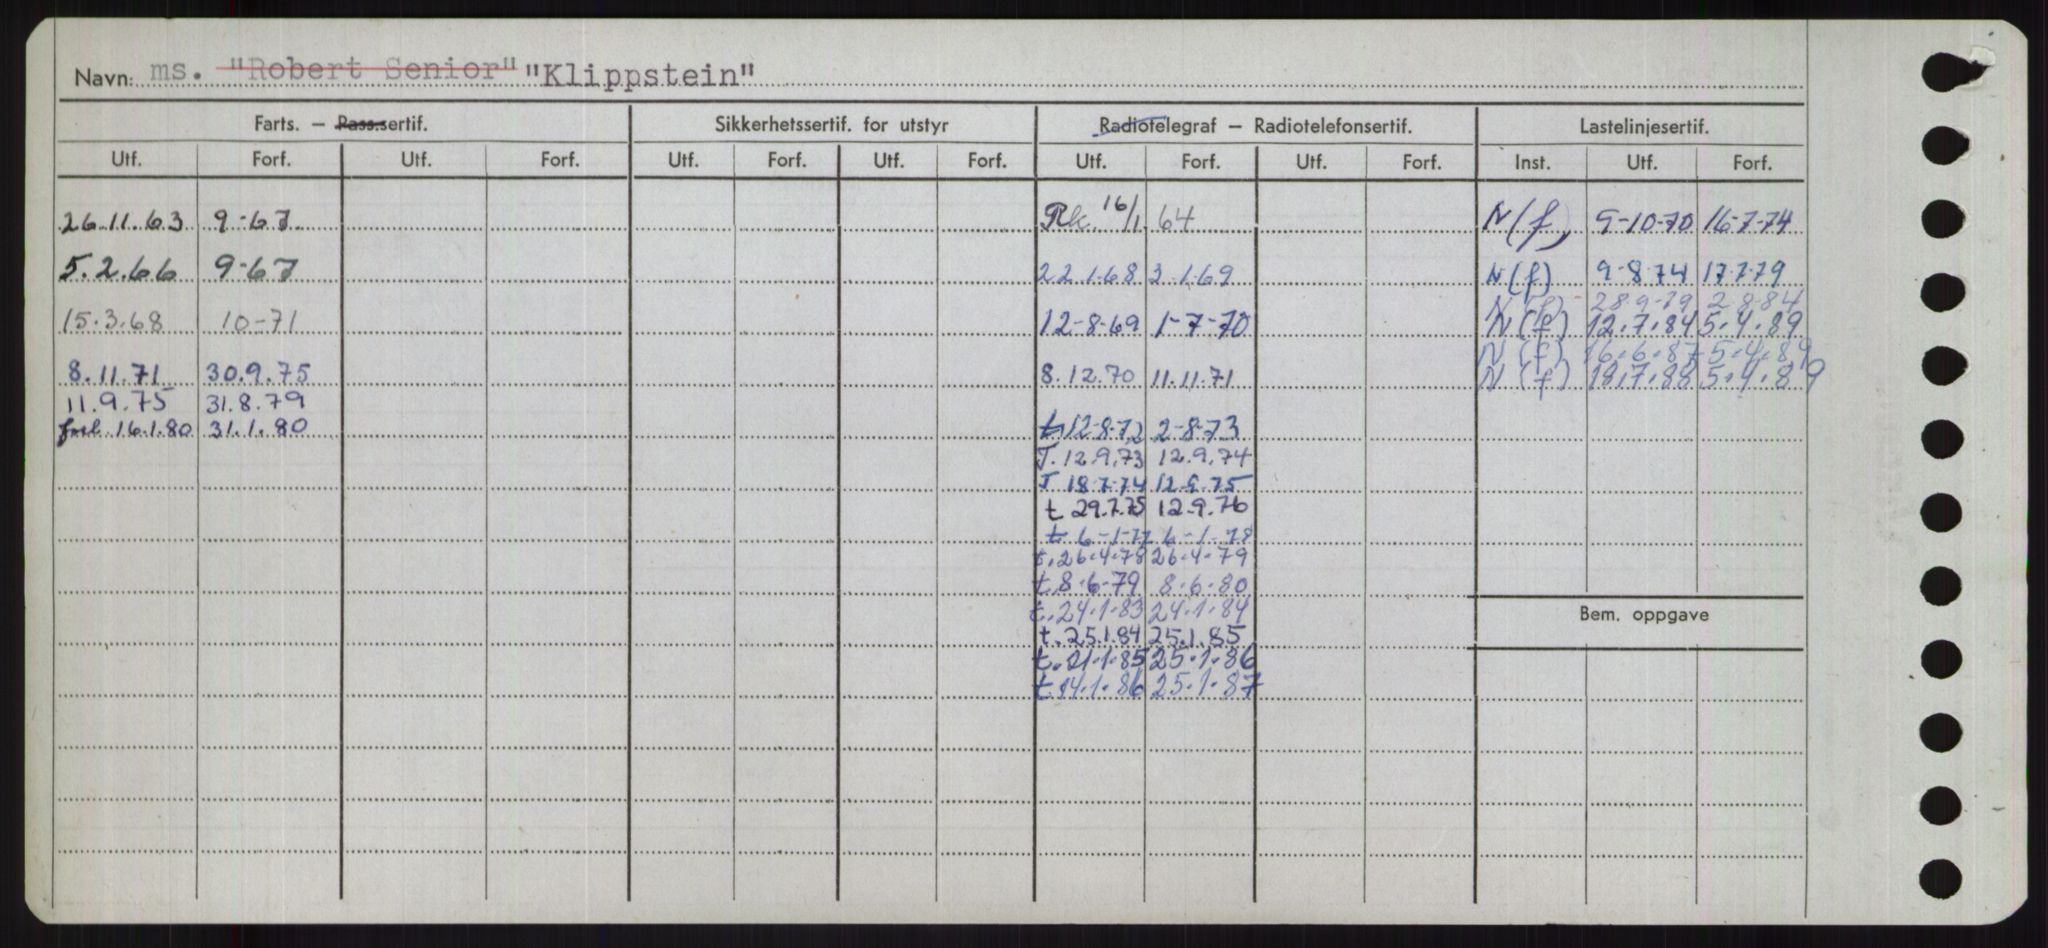 Navn: ms. "Robert Senior" "Klippstein"
Farts. — Pass.sertif. Sikkerhetssertif. for utstyr Radiotelegraf — Radiotelefonsertif. Lastelinjesertif.
Utf. Forf. Utf. Forf. Utf. Forf. Utf. Forf. Utf. Forf. Utf. Forf. Inst. Utf. Forf.
26.11.63 9-67 Rk. 16/1. 64 N(f) 9-10-70 16-7-74
5.2.66 9-67 22.1.68 3.1.69 N(f) 9-8-74 17.7.79
N(f) 28.9.79 2.8.84
15.3.68 10-71 12-8-69 1-7-70 N(f) 12.7.84 5.4.89
N(f) 16.6.87 5.4.89
8.11.71 30.9.75 8.12.70 11.11.71 N(f) 18.7.88 5.4.89
11.9.75 31.8.79
forl. 16.1.80 31.1.80 t. 12-8-72 2-8-73
T. 12.9.73 12.9.74
T 18.7.74 12.9.75
t 29.7.75 12.9.76
t 6-1-77 6-1-78
t. 26.4.78 26.4.79
t. 8-6-79 8.6.80
t. 24.1.83 24.1.84
Bem. oppgave
t. 25.1.84 25.1.85
t. 21.1.85 25.1.86
t. 14.1.86 25.1.87